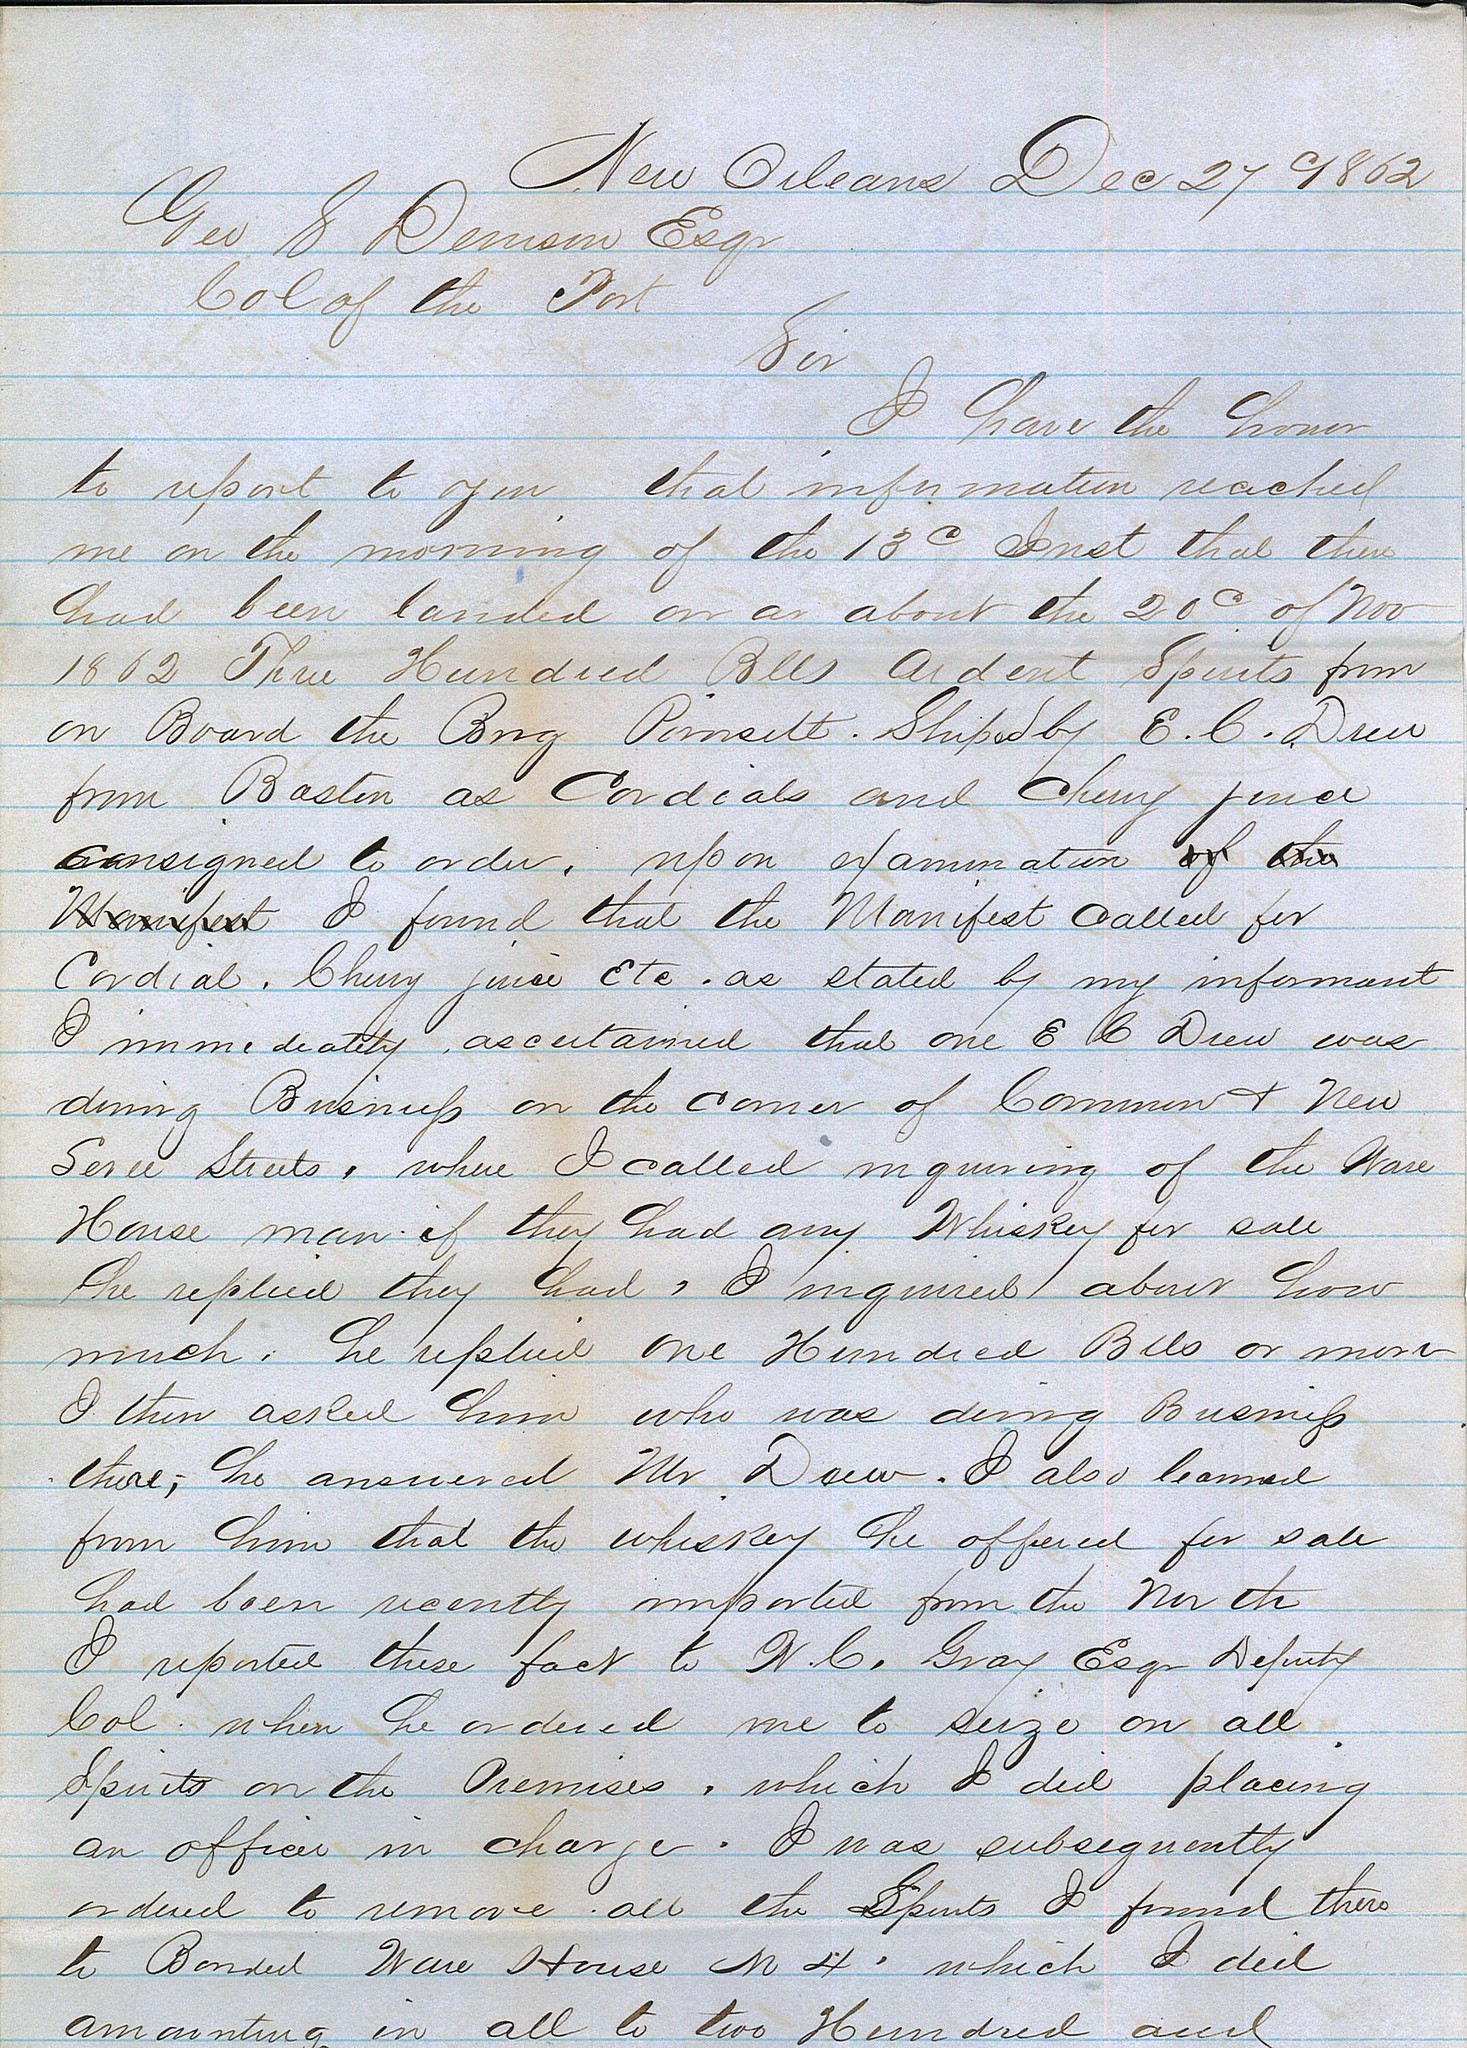 New Orleans Dec 27 1862
Geo S Denison Esqr
Col of the Port
Sir
I have the honor
to report to you that information reached
me on the morning of the 13th Inst that there
had been landed on or about the 20th of Nov
1862 Three Hundred Blls Ardent Spirits from
on Board the Brig Poinsett. Shiped by E. C. Drew
from Boston as Cordials and Cherry juice
consigned to order. upon examination of the
Manifest I found that the Manifest called for
Cordial. Cherry juice Etc. as stated by my informant
I immediately ascertained that one E C Drew was
doing Business on the corner of Common & New
Levee Streets, where I called inquiring of the Ware
House man if they had any Whiskey for sale
he replied they had, I inquired about how
much. he replied one Hundred Blls or more
I then asked him who was doing Business
there, he answered Mr Drew. I also learned
from him that the whiskey he offered for sale
had been recently imported from the North
I reported these fact to W. C. Gray Esqr Deputy
Col. when he ordered me to seize on all
Spirits on the Premises, which I did placing
an officer in charge. I was subsequently
ordered to remove all the Spirits I found there
to Bonded Ware House N 4. which I did
amounting in all to two Hundred and